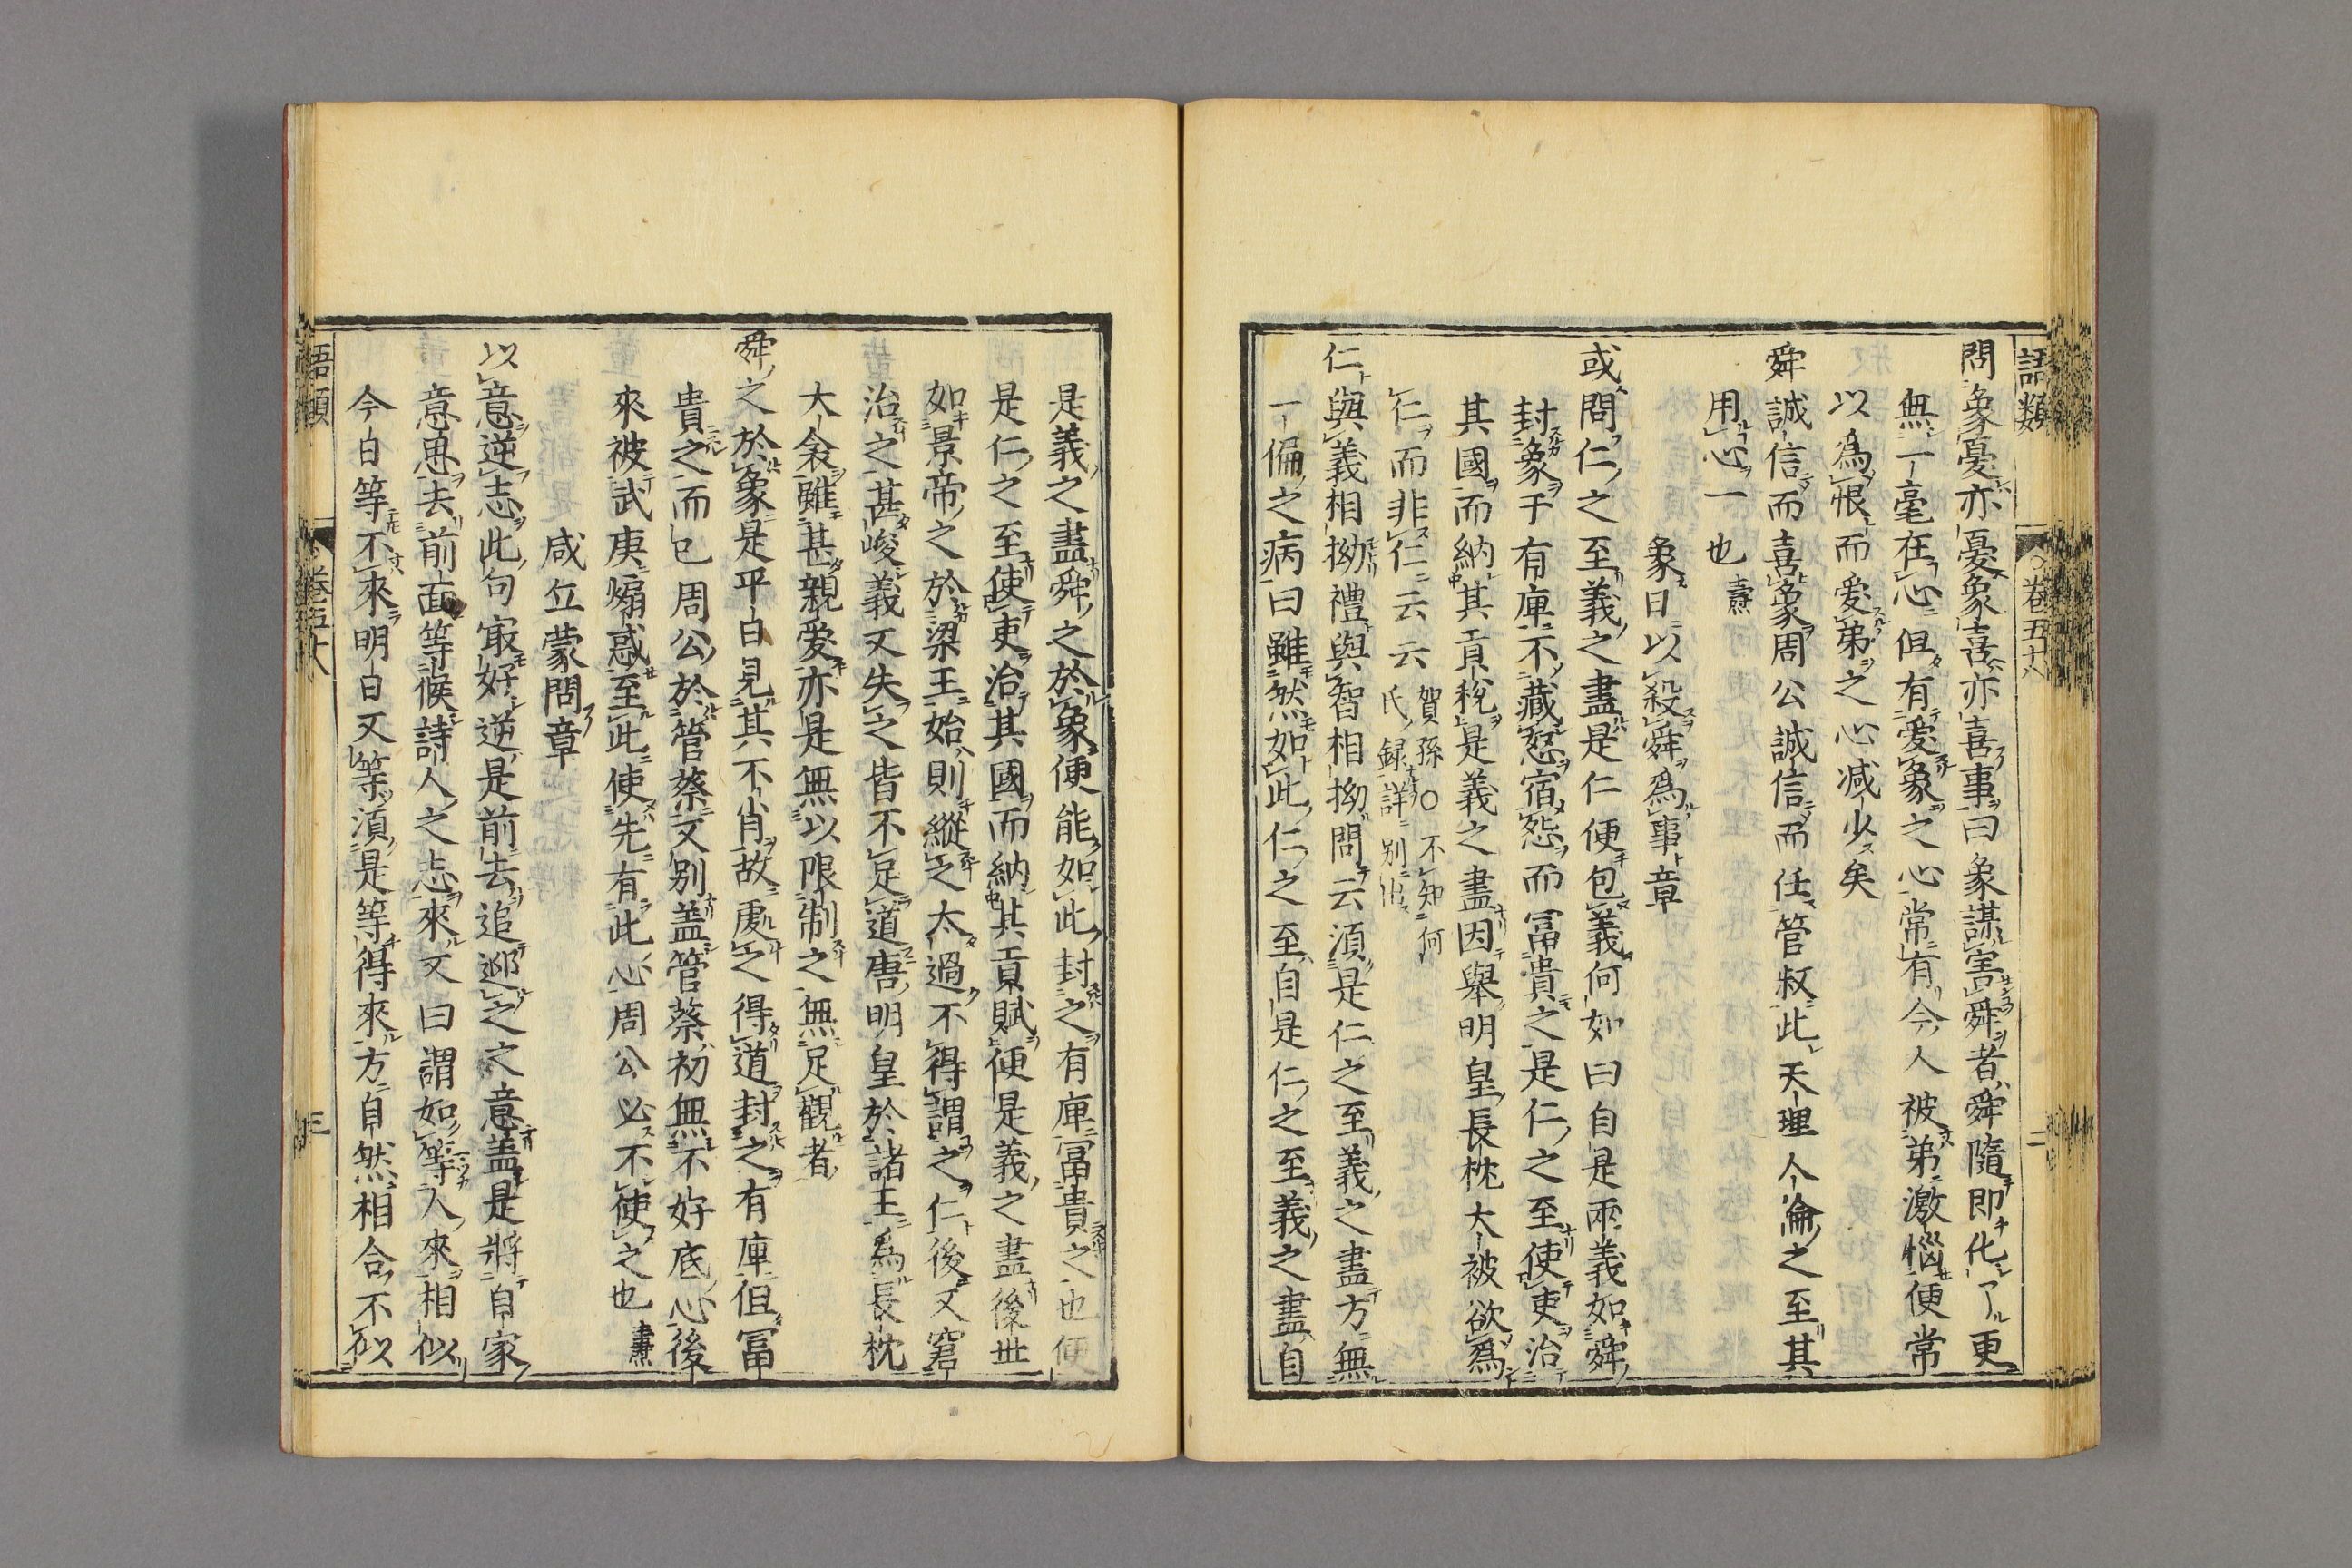 語類
卷五十八
二
問象憂亦憂象喜亦喜事曰象謀害舜者舜隨即化了更
無一毫在心但有愛象之心常有今人被弟激惱便常
以爲恨而愛弟之心減少矣
舜誠信而喜象周公誠信而任管叔此天理人倫之至其
用心一也 燾
象日以殺舜爲事章
或問仁之至義之盡是仁便包義何如曰自是兩義如舜
封象于有庳不藏怒宿怨而富貴之是仁之至使吏治
其國而納其貢稅是義之盡因舉明皇長枕大被欲爲
仁而非仁云云 賀孫○不知何
氏録詳別出
仁與義相拗禮與智相拗問云須是仁之至義之盡方無
一偏之病曰雖然如此仁之至自是仁之至義之盡自
是義之盡舜之於象便能如此封之有庳富貴之也便
是仁之至使吏治其國而納其貢賦便是義之盡後世
如景帝之於梁王始則縱之太過不得謂之仁後又窘
治之甚峻義又失之皆不足道唐明皇於諸王爲長枕
大衾雖甚親愛亦是無以限制之無足觀者
舜之於象是平日見其不肖故處之得道封之有庳但富
貴之而已周公於管蔡又別蓋管蔡初無不好底心後
來被武庚煽惑至此使先有此心周公必不使之也 燾
咸丘蒙問章
以意逆志此句最好逆是前去追迎之之意蓋是將自家
意思去前面等候詩人之志來又曰謂如等人來相似
今日等不來明日又等須是等得來方自然相合不似
語類
卷五十八
三